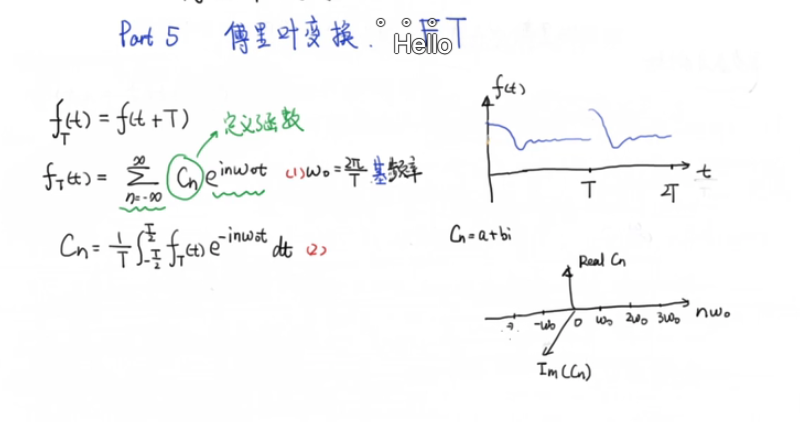 Part 5 傅里叶变换. FT
Hello
f_T(t) = f(t+T)
定义函数
f_T(t) = ∑_{n=-∞}^{∞} C_n e^{inω₀t} (1) ω₀ = 2π/T 基频率
C_n = 1/T ∫_{-T/2}^{T/2} f_T(t) e^{-inω₀t} dt (2)
f(t)
t
T 2T
C_n = a+bi
Real Cn
-ω₀ 0 ω₀ 2ω₀ 3ω₀ nω₀
Im(Cn)